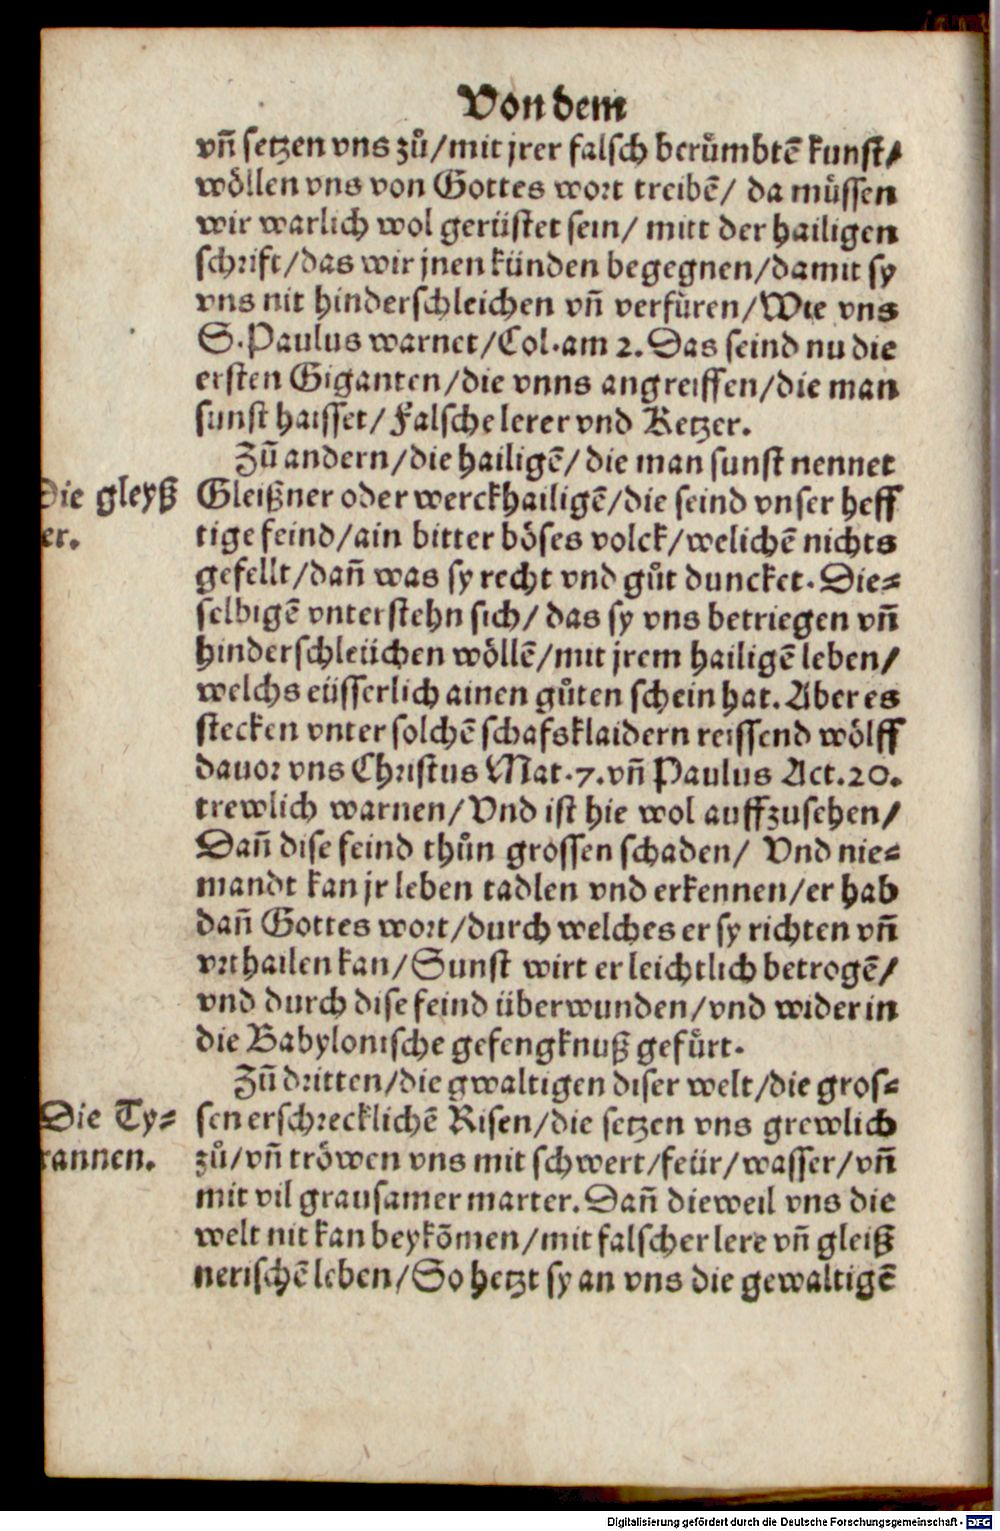 Von dem
vñ setzen vns zů/mit jrer falsch berůmbtẽ kunst/
wöllen vns von Gottes wort treibẽ/ da müssen
wir warlich wol gerüstet sein/ mitt der hailigen
schrift/das wir jnen künden begegnen/damit sy
vns nit hinderschleichen vñ verfüren/Wie vns
S.Paulus warnet/Col.am 2.Das seind nu die
ersten Giganten/die vnns angreiffen/die man
sunst haisset/Falsche lerer vnd Ketzer.
Zũ andern/die hailigẽ/die man sunst nennet
Die gleyß
er.
Gleißner oder werckhailigẽ/die seind vnser heff
tige feind/ain bitter böses volck/welichẽ nichts
gefellt/dañ was sy recht vnd gůt duncket.Die=
selbigẽ vnterstehn sich/ das sy vns betriegen vñ
hinderschleiichen wöllẽ/mit jrem hailigẽ leben/
welchs eüsserlich ainen gůten schein hat.Aber es
stecken vnter solchẽ schafsklaidern reissend wölff
dauor vns Christus Mat.7.vñ Paulus Act.20.
trewlich warnen/Vnd ist hie wol auffzusehen/
Dañ dise feind thůn grossen schaden/ Vnd nie=
mandt kan jr leben tadlen vnd erkennen/er hab
dañ Gottes wort/durch welches er sy richten vñ
vrthailen kan/Sunst wirt er leichtlich betrogẽ/
vnd durch dise feind überwunden/vnd wider in
die Babylonische gefengknuß gefürt.
Zũ dritten/die gwaltigen diser welt/die gros=
Die Ty=
rannen.
sen erschrecklichẽ Risen/die setzen vns grewlich
zů/vñ tröwen vns mit schwert/feür/wasser/vñ
mit vil grausamer marter.Dañ dieweil vns die
welt nit kan beykõmen/mit falscher lere vñ gleiß
nerischẽ leben/So hetzt sy an vns die gewaltigẽ
Digitalisierung gefördert durch die Deutsche Forschungsgemeinschaft - DFG